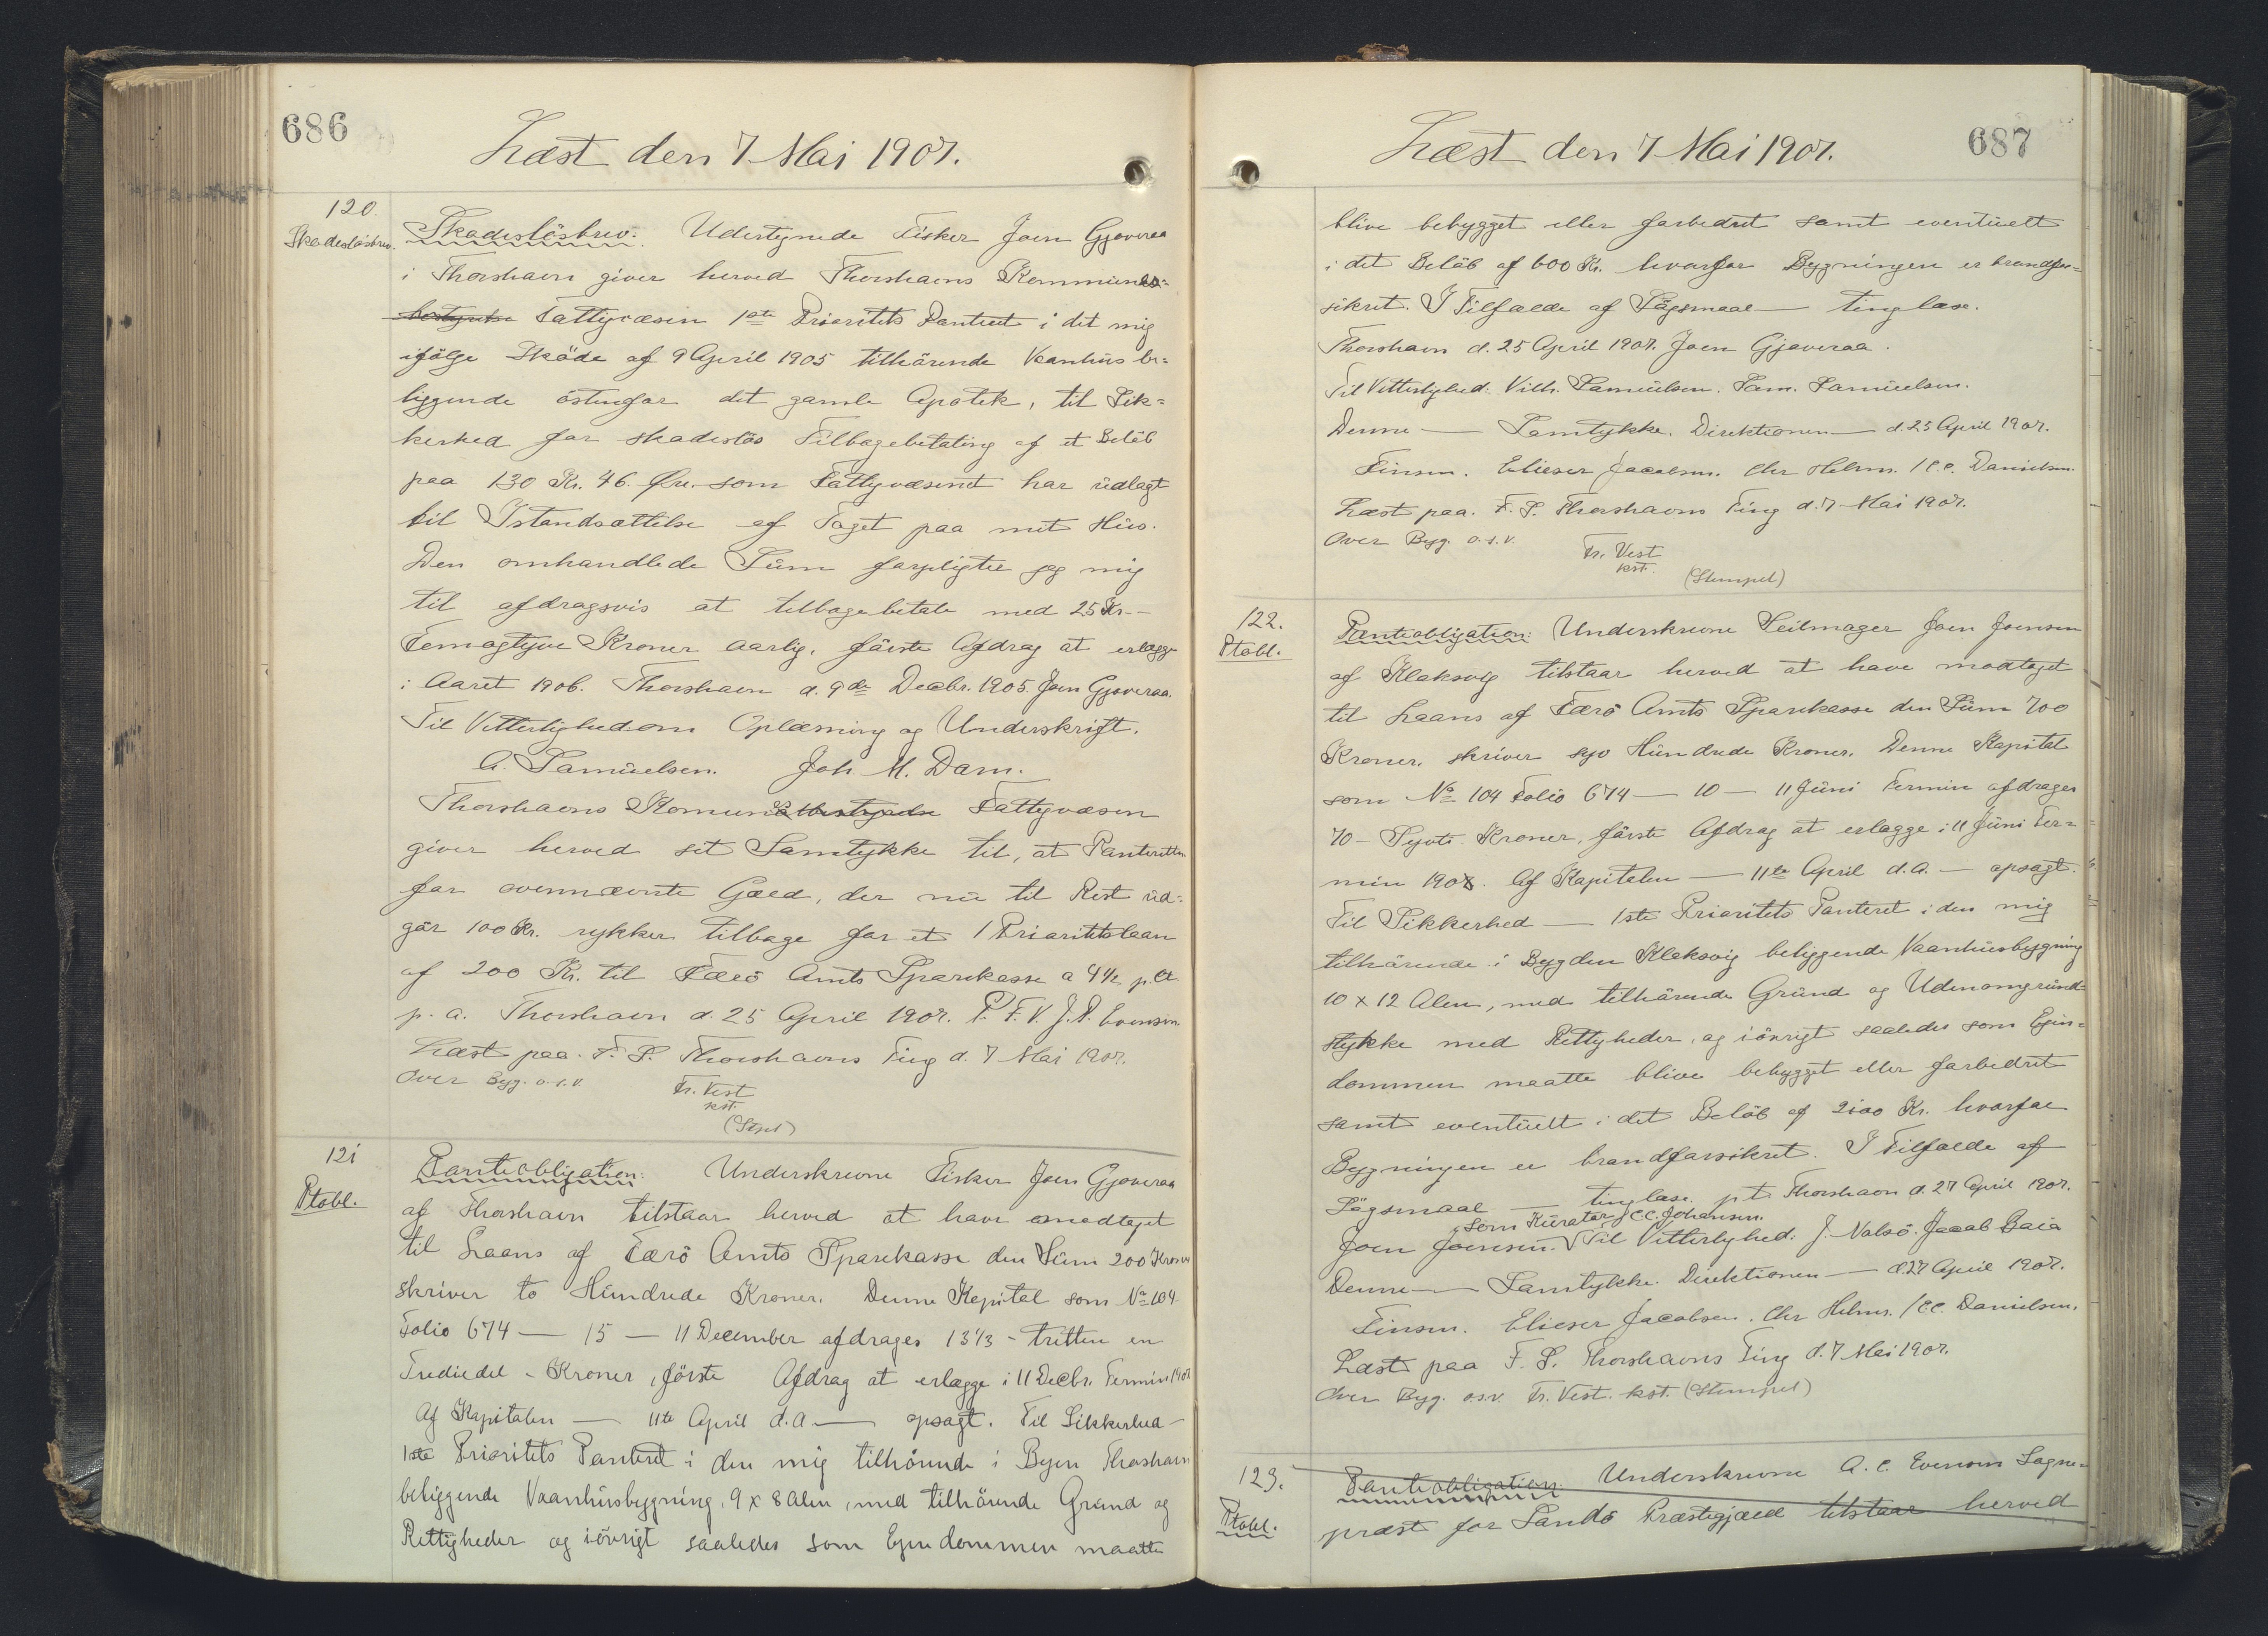 686
Læst den 7 Mai 1907.
120.
Skadesløsbrev.
Skadesløsbrev. Udertegnede Fisker Joen Gjoveraa
i Thorshavn giver herved Thorshavns Kommunes-
bestyrelse Fattigvæsen 1ste Prioritets Panteret i det mig
ifölge Sköde af 9 April 1905 tilhörende Vaanhus be-
liggende östenfor det gamle Apotek, til Sik-
kerhed for skadeslös Tilbagebetaling af et Belöb
paa 130 Kr. 46. Øre. som Fattigvæsenet har udlagt
til Istandsættelse af Taget paa mit Hus.
Den omhandlede Sum forpligter jeg mig
til afdragsvis at tilbagebetale med 25 Kr. -
Femogtyve Kroner aarlig, förste Afdrag at erlægge
i Aaret 1906. Thorshavn d. 9de Decbr. 1905. Joen Gjoveraa.
Til Vitterlighed om Oplæsning og Underskrift.
A. Samuelsen. Joh. M. Dam.
Thorshavns Komunes Fattigvæsen
giver herved sit Samtykke til, at Panteretten
for ovennævnte Gæld, der nu til Rest ud-
gör 100 Kr. rykker tilbage for et 1 Prioritetslaan
af 200 Kr. til Færö Amts Sparekasse a 4½ p. Ct.
p. a. Thorshavn d. 25 April 1907. P. F. V. J. P. Evensen
Læst paa F. S. Thorshavns Ting d. 7 Mai 1907.
Over Byg. o.s.v.
Fr. Vest
kst.
(Stpl)
121
Ptobl.
Panteobligation: Underskrevne Fisker Joen Gjoveraa
af Thorshavn tilstaar herved at have modtaget
til Laans af Færö Amts Sparekasse den Sum 200 Kroner
skriver to Hundrede Kroner. Denne Kapital som No 104
Folio 674 — 15 — 11 December afdrages 13⅓ - tretten en
Trediedel - Kroner, förste Afdrag at erlægge i 11 Decbr. Termin 1907
Af Kapitalen — 11te April d.A. — opsagt. Til Sikkerhed -
1ste Prioritets Panteret i den mig tilhörende i Byen Thorshavn
beliggende Vaanhusbygning, 9 x 8 Alen, med tilhörende Grund og
Rettigheder og iövrigt saaledes som Ejendommen maatte
687
Læst den 7 Mai 1907.
blive bebygget eller forbedret samt eventuelt
i det Belöb af 600 Kr. hvorfor Bygningen er brandfor-
sikret. I Tilfælde af Sögsmaal — tinglæse.
Thorshavn d. 25 April 1907. Joen Gjoveraa.
Til Vitterlighed: Vilh. Samuelsen. Sam. Samuelsen.
Denne — Samtykke. Direktionen — d. 25 April 1907.
Finsen. Elieser Jacobsen. Chr Helms. / C.C. Danielsen.
Læst paa. F. S. Thorshavns Ting d. 7 Mai 1907.
Over Byg. o.s.v.
Fr. Vest
kst.
(Stempel)
122.
Ptobl.
Panteobligation: Underskrevne Seilmager Joen Joensen
af Klaksvig tilstaar herved at have modtaget
til Laans af Færö Amts Sparekasse den Sum 700
Kroner, skriver syv Hundrede Kroner. Denne Kapital
som No 104 Folio 674 — 10 — 11 Juni Termin afdrages
70 - Syvti Kroner, förste Afdrag at erlægge i 11 Juni Ter-
min 1908. Af Kapitalen — 11te April d.A. — opsagt.
Til Sikkerhed — 1ste Prioritets Panteret i den mig
tilhörende i Bygden Klaksvig beliggende Vaanhusbygning
10 x 12 Alen, med tilhörende Grund og Udenomsgrund-
stykke med Rettigheder, og iövrigt saaledes som Ejen-
dommen maatte blive bebygget eller forbedret
samt eventuelt i det Belöb af 2100 Kr. hvorfor
Bygningen er brandforsikret. I Tilfælde af
Sögsmaal — tinglæse. pt. Thorshavn d. 27 April 1907.
som Kurator J.C.C. Johansen.
Joen Joensen. V Til Vitterlighed: J. Nolsö. Jacob Baia
Denne — Samtykke. Direktionen — d. 27 April 1907.
Finsen. Elieser Jacobsen. Chr Helms. / C.C. Danielsen.
Læst paa F. S. Thorshavns Ting d. 7 Mai 1907.
Over Byg. o.s.v. Fr. Vest. kst. (Stempel)
123.
Ptobl.
Panteobligation. Underskrevne A. C. Evensen Sogne-
præst for Sandö Præstegjæld tilstaar herved